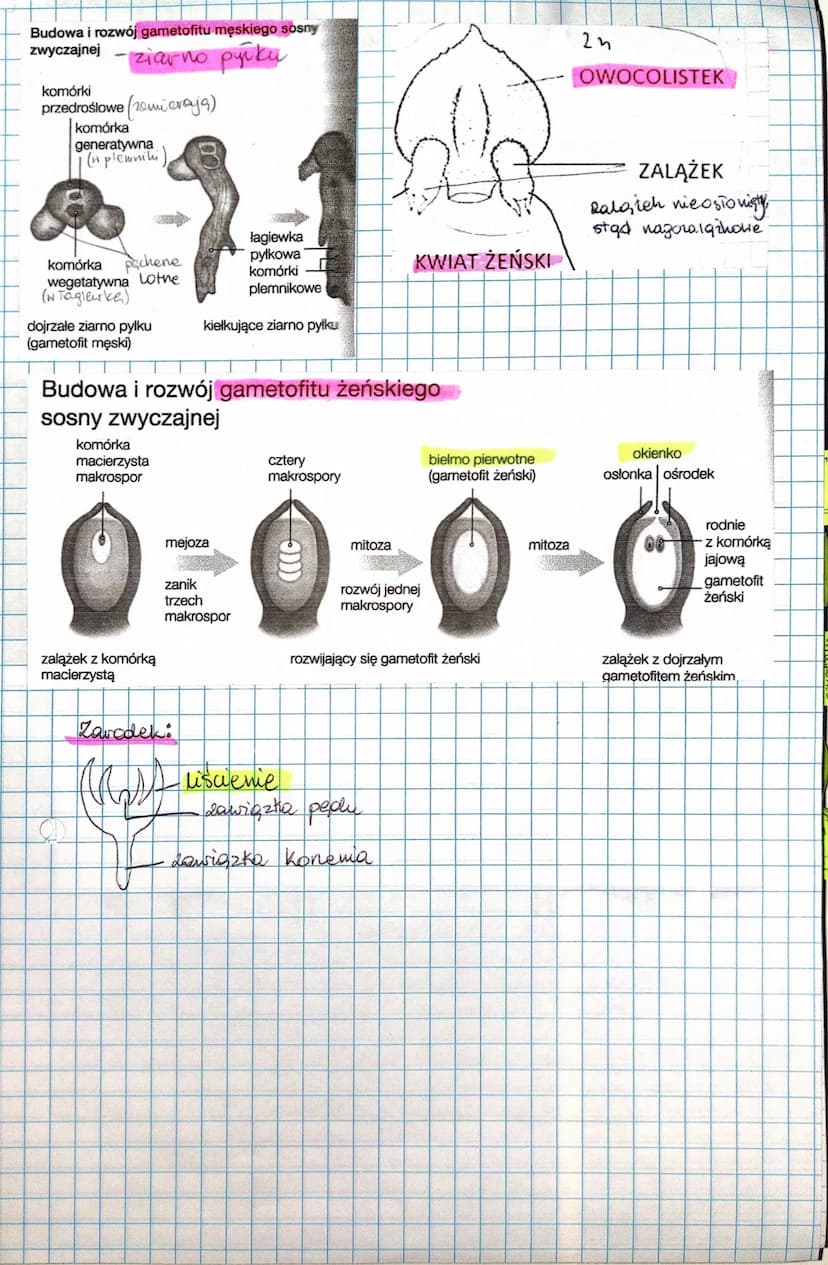 Budowa i rozwój gametofitu męskiego sosny
zwyczajnej – ziarno pyłku
komórki
przedroślowe (zamierają)
komórka
generatywna
(→ plemniki)
łagiewka
pyłkowa
komórki
plemnikowe
komórka
wegetatywna
(→ łagiewka)
pęcherze
lotne
dojrzałe ziarno pyłku
(gametofit męski)
kiełkujące ziarno pyłku
2n
OWOCOLISTEK
ZALĄŻEK
zalążek nieosłonięty,
stąd nagozalążkowe
KWIAT ŻEŃSKI
Budowa i rozwój gametofitu żeńskiego
sosny zwyczajnej
komórka
macierzysta
makrospor
mejoza
zanik
trzech
makrospor
cztery
makrospory
mitoza
rozwój jednej
makrospory
bielmo pierwotne
(gametofit żeński)
mitoza
okienko
osłonka ośrodek
rodnie
z komórką
jajową
gametofit
żeński
zalążek z komórką
macierzystą
rozwijający się gametofit żeński
zalążek z dojrzałym
gametofitem żeńskim
Zarodek:
liścienie
zawiązka pędu
zawiązka korzenia